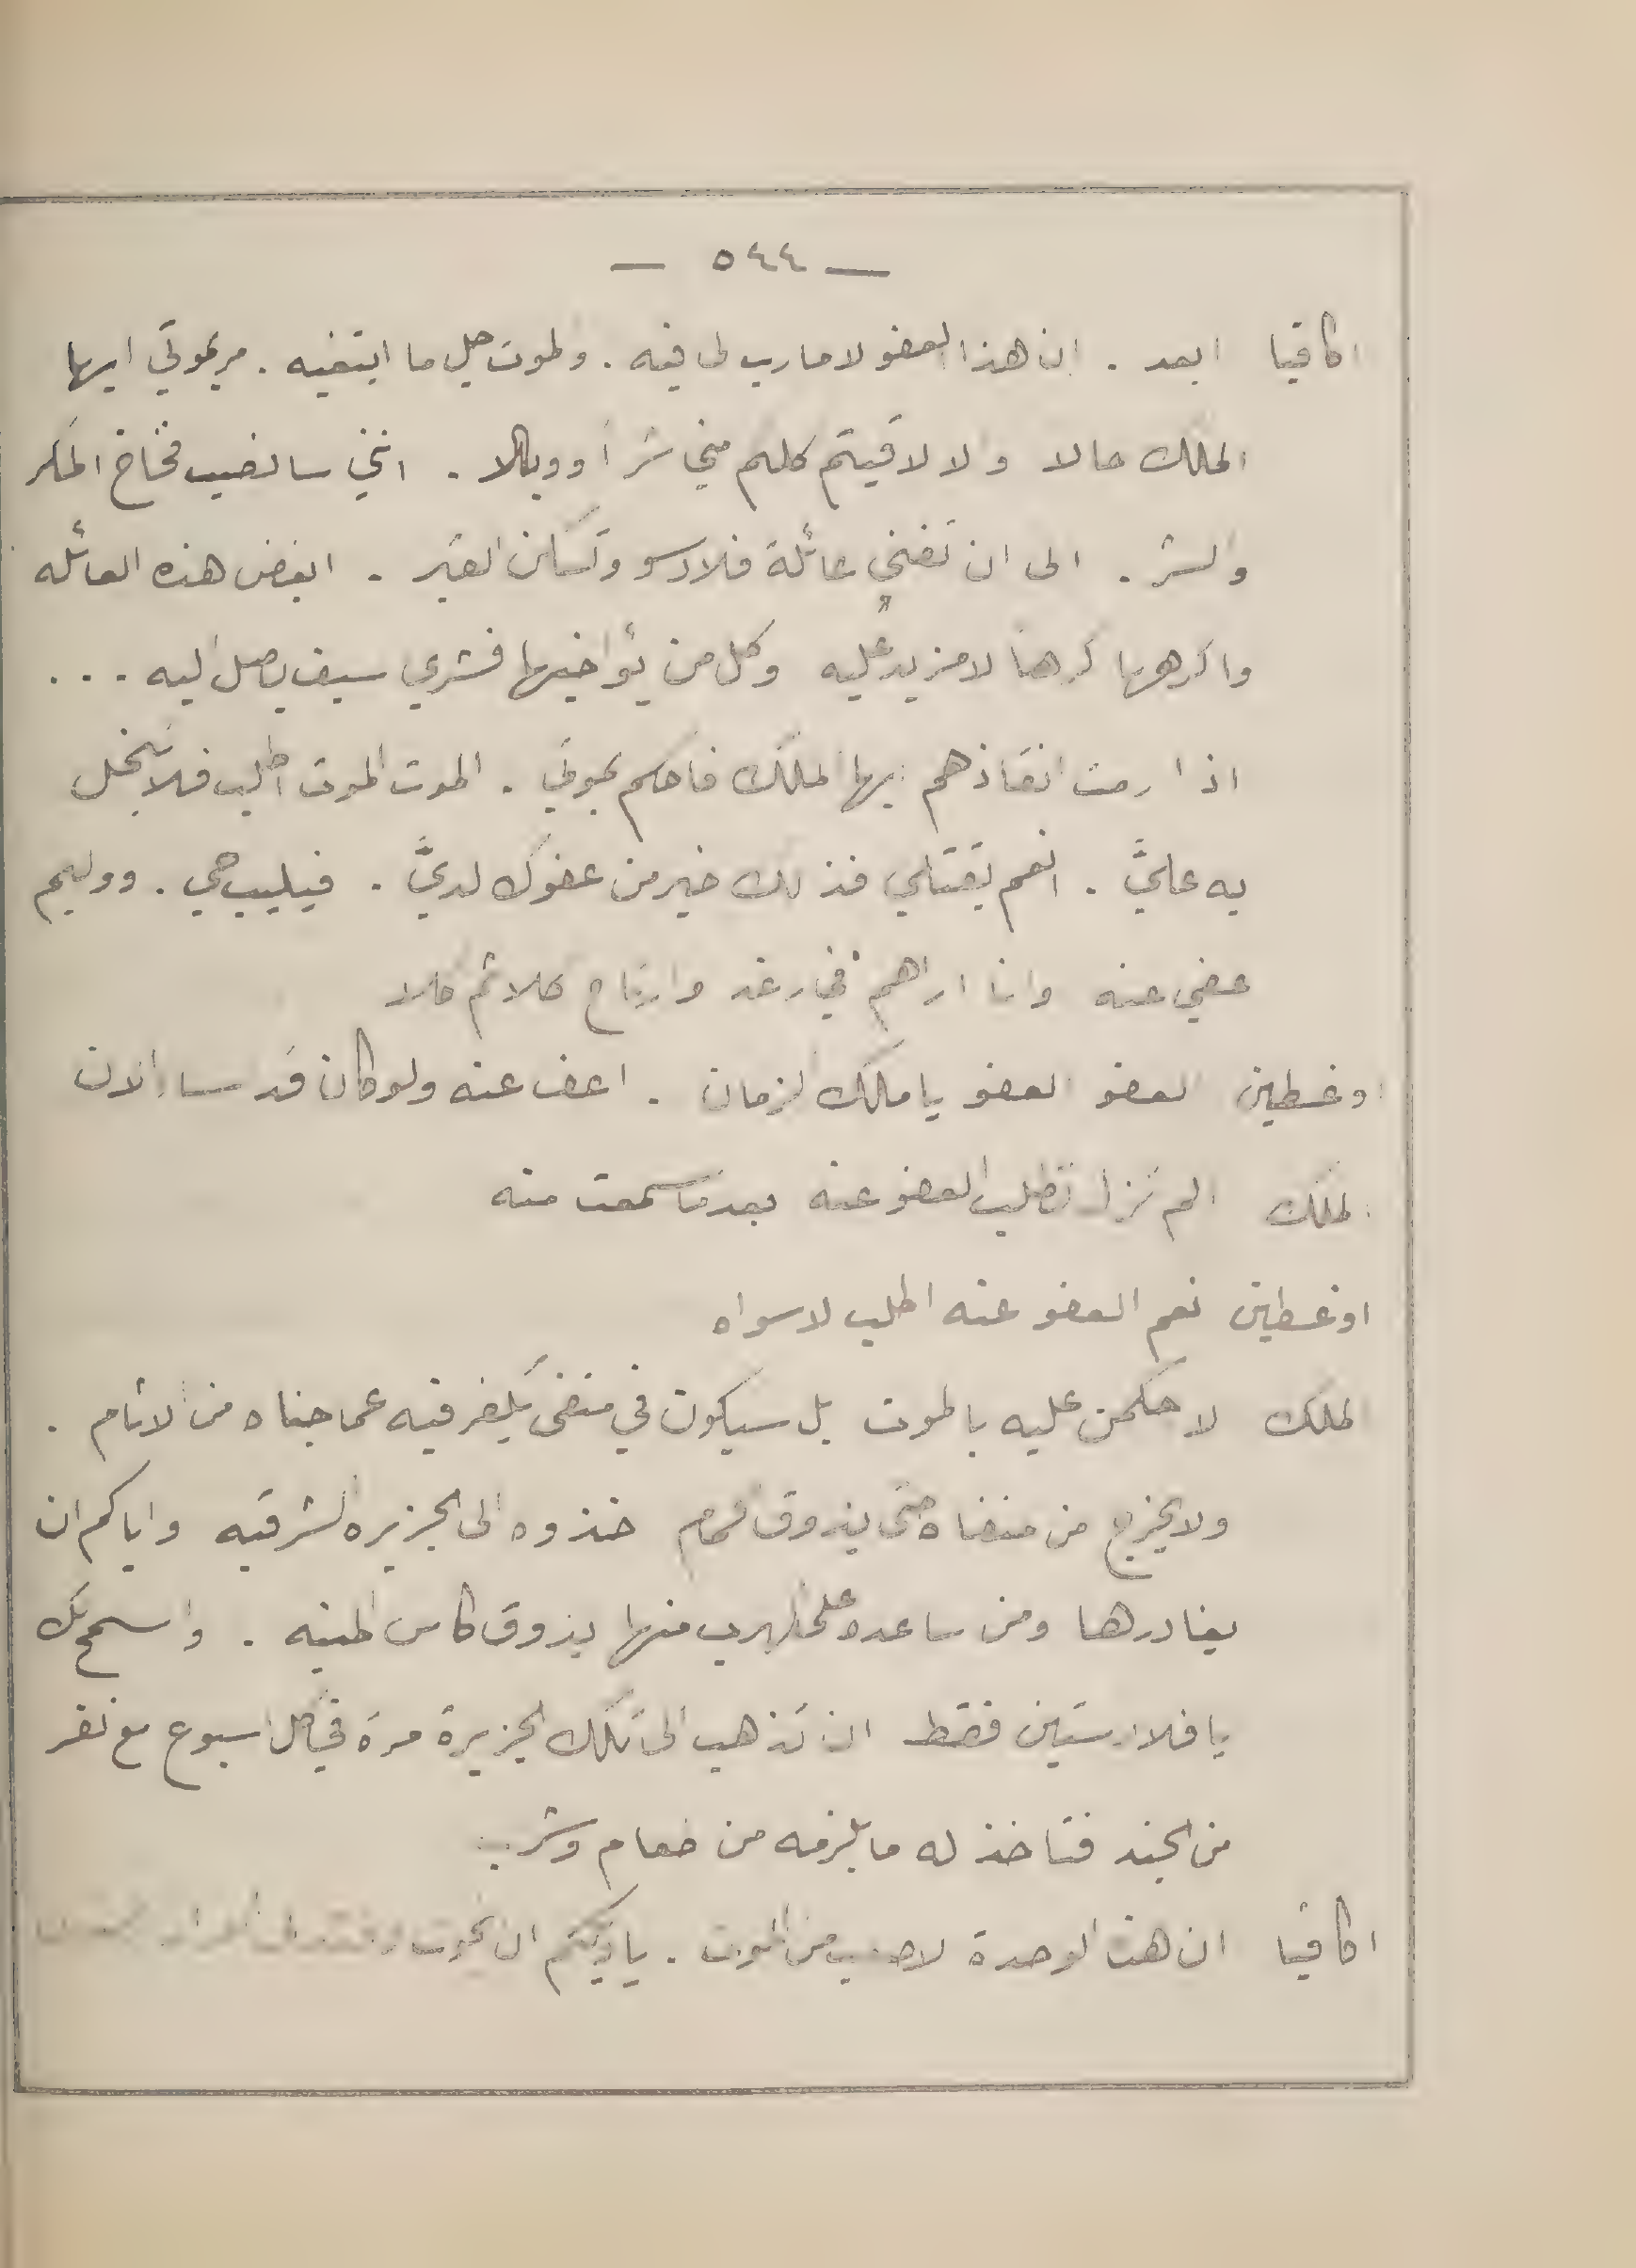 — ٥٤٤ —
اكاقيا ابعد . ان هذا العفو لا مارب لى فيه . والموت جل ما ابتغيه . مر بموتي ايها
الملك حالا والا لاقيتم كلكم مني شراً ووبالا . انني سانصب فخاخ المكر
والشر . الى ان تفنى عائلة فلادسو وتسكن القبر . ابغض هذه العائله
واكرهها كرها لا مزيد عليه وكل من يؤاخيها فشري سيف يصل اليه ...
اذا رمت انقاذهم ايها الملك فاحكم بموتي . الموت الموت اطلب فلا تبخل
به عليَّ . انعم بقتلي فذلك خير من عفوك لديَّ . فيليب حي . ووليم
عفي عنه وانا اراهم في رغد وارتاح كلا ثم كلا
اوغسطين العفو العفو يا ملك الزمان . اعف عنه ولو كان قد سا الان
الملك الم تزل تطلب العفو عنه بعد ما سمعت منه
اوغسطين نعم العفو عنه اطلب لا سواه
الملك لا حكمن عليه بالموت بل سيكون في منفى يكفر فيه عما جناه من الاثام .
ولا يخرج من منفاه حتى يذوق الحمام خذوه الى الجزيره الشرقيه واياكم ان
يغادرها ومن ساعده على الهرب منها يذوق كاس المنيه . واسمح لك
يا فلارستين فقط ان تذهب الى تلك الجزيرة مرة في كل اسبوع مع نفر
من الجند فتاخذ له ما يلزمه من طعام وشرب
اكاقيا ان هذه الوحدة لاصعب من الموت .